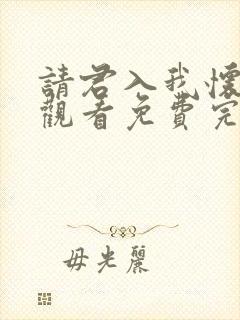 請君入我懷
觀看免費完
毋光麗